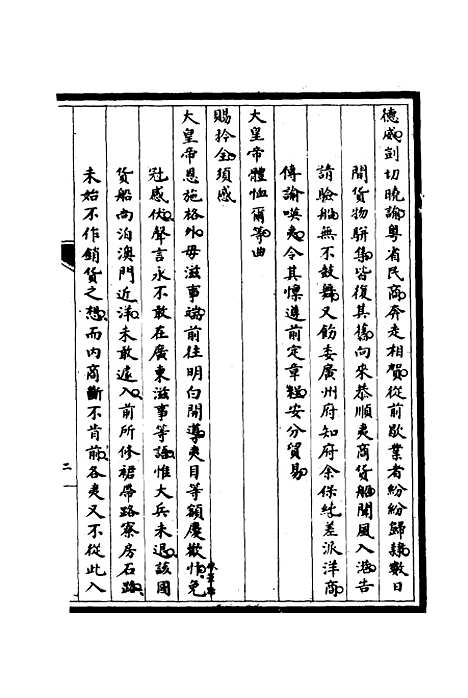 德威剴切曉諭粵省民商奔走相賀從前歇業者紛紛歸肆數日
間貨物駢集皆復其舊向來恭順夷商貨船聞風入港告
請驗船無不鼓舞又飭委廣州府知府余保純差派洋商
傳諭㗎夷令其懍遵前定章程安分貿易
大皇帝體恤爾等曲
賜矜全頊感
大皇帝恩施格外毋滋事端前往明白開導夷目等額慶歡忭免
冠感伏聲言永不敢在廣東滋事等語惟大兵未退該國
貨船尚泊澳門近洋未敢遽入前所修裙帶路寮房石路
未始不作銷貨之想而內商斷不肯前各夷又不從此入
二